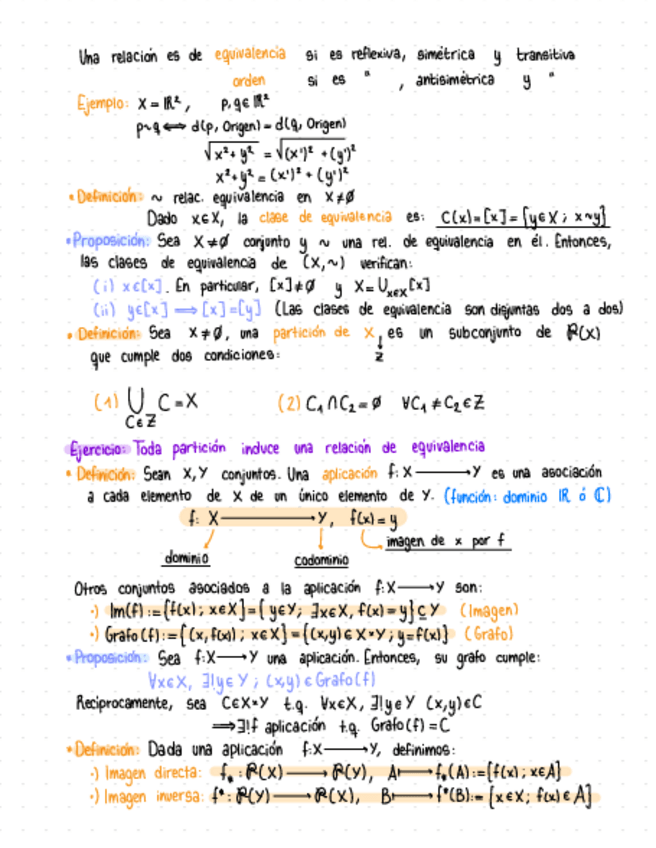 Una relación es de equivalencia si es reflexiva, simétrica y transitiva
orden si es " , antisimétrica y "
Ejemplo: X = ℝ², p,q ∈ ℝ²
p~q ⟺ d(p, Origen) = d(q, Origen)
√(x²+y²) = √((x')²+(y')²)
x²+y² = (x')² + (y')²
• Definición: ~ relac. equivalencia en X≠∅
Dado x∈X, la clase de equivalencia es: C(x)=[x]={y∈X ; x~y}
• Proposición: Sea X≠∅ conjonto y ~ una rel. de equivalencia en él. Entonces,
las clases de equivalencia de (X,~) verifican:
(i) x∈[x]. En particular, [x]≠∅ y X=U_{x∈X}[x]
(ii) y∈[x] ⟹ [x]=[y] (Las clases de equivalencia son disjuntas dos a dos)
• Definición: Sea X≠∅, una partición de X, es un subconjunto de P(X)
↓
Z
que cumple dos condiciones:
(1) ⋃_{C∈Z} C = X (2) C₁∩C₂=∅ ∀C₁≠C₂∈Z
Ejercicio: Toda partición induce una relación de equivalencia
• Definición: Sean X,Y conjuntos. Una aplicación f: X⟶Y es una asociación
a cada elemento de X de un único elemento de Y. (función: dominio ℝ ó ℂ)
f: X⟶Y, f(x)=y
imagen de x por f
dominio codominio
Otros conjuntos asociados a la aplicación f:X⟶Y son:
·) Im(f):={f(x); x∈X}={y∈Y; ∃x∈X, f(x)=y}⊆Y (Imagen)
·) Grafo(f):={(x,f(x)); x∈X}={(x,y)∈X×Y; y=f(x)} (Grafo)
• Proposición: Sea f:X⟶Y una aplicación. Entonces, su grafo cumple:
∀x∈X, ∃!y∈Y; (x,y)∈Grafo(f)
Reciprocamente, sea C∈X×Y t.q. ∀x∈X, ∃!y∈Y (x,y)∈C
⟹∃!f aplicación t.q. Grafo(f)=C
• Definición: Dada una aplicación f:X⟶Y, definimos:
·) Imagen directa: f⁎: P(X)⟶P(Y), A⟼f⁎(A):={f(x); x∈A}
·) Imagen inversa: f*: P(Y)⟶P(X), B⟼f*(B):={x∈X; f(x)∈A}